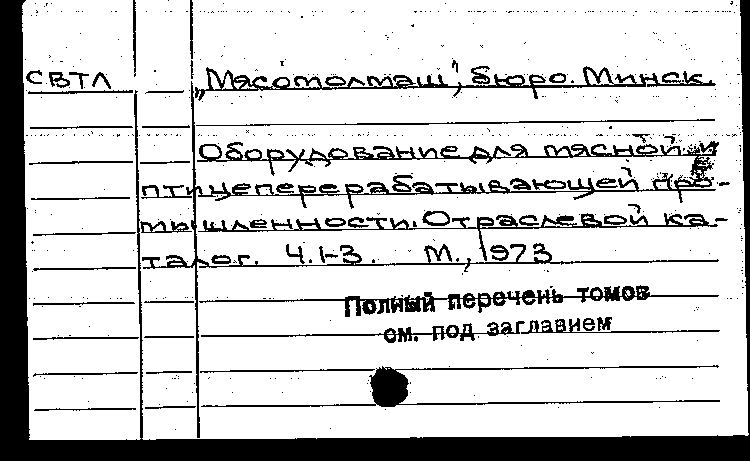 СВТЛ „Мясомолмаш", бюро. Минск.
Оборудование для мясной и
птицеперерабатывающей про-
мышленности. Отраслевой ка-
талог. Ч. 1-3. М., 1973
Полный перечень томов
см. под заглавием